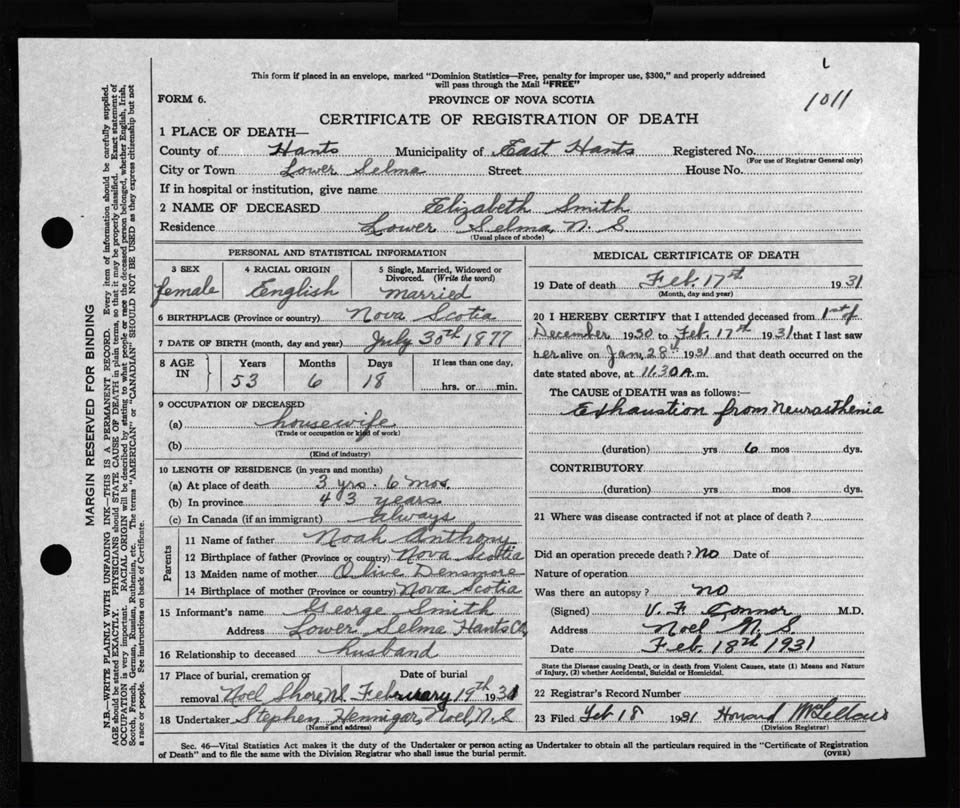 This form if placed in an envelope, marked "Dominion Statistics—Free, penalty for improper use, $300," and properly addressed
will pass through the Mail "FREE"
1011
FORM 6.
PROVINCE OF NOVA SCOTIA
CERTIFICATE OF REGISTRATION OF DEATH
1 PLACE OF DEATH—
County of Hants Municipality of East Hants Registered No.
(For use of Registrar General only)
City or Town Lower Selma Street House No.
If in hospital or institution, give name
2 NAME OF DECEASED Elizabeth Smith
Residence Lower Selma, N. S
(Usual place of abode)
PERSONAL AND STATISTICAL INFORMATION
3 SEX 4 RACIAL ORIGIN 5 Single, Married, Widowed or
Divorced. (Write the word)
female English married
6 BIRTHPLACE (Province or country) Nova Scotia
7 DATE OF BIRTH (month, day and year) July 30th 1877
8 AGE IN Years Months Days If less than one day,
53 6 18 hrs. or min.
9 OCCUPATION OF DECEASED
(a) housewife
(Trade or occupation or kind of work)
(b)
(Kind of industry)
10 LENGTH OF RESIDENCE (in years and months)
(a) At place of death 3 yrs. 6 mos.
(b) In province 43 years
(c) In Canada (if an immigrant) always
Parents
11 Name of father Noah Anthony
12 Birthplace of father (Province or country) Nova Scotia
13 Maiden name of mother Olive Densmore
14 Birthplace of mother (Province or country) Nova Scotia
15 Informant's name George Smith
Address Lower Selma Hants Co,
16 Relationship to deceased husband
17 Place of burial, cremation or Date of burial
removal Noel Shore, N.S. February 19th 1931
18 Undertaker Stephen Hennigar, Noel, N. S
(Name and address)
MEDICAL CERTIFICATE OF DEATH
19 Date of death Feb. 17st 1931
(Month, day and year)
20 I HEREBY CERTIFY that I attended deceased from 1st of
December 1930 to Feb. 17th 1931 that I last saw
her alive on Jan. 28th 1931 and that death occurred on the
date stated above, at 11.30 A. m.
The CAUSE OF DEATH was as follows:—
Exhaustion from Neurasthenia
(duration) yrs 6 mos dys.
CONTRIBUTORY
(duration) yrs. mos. dys.
21 Where was disease contracted if not at place of death?
Did an operation precede death? no Date of
Nature of operation
Was there an autopsy? no
(Signed) V. F. Connor M.D.
Address Noel N. S.
Date Feb. 18th 1931
State the Disease causing Death, or in death from Violent Causes, state (1) Means and Nature
of Injury, (2) whether Accidental, Suicidal or Homicidal.
22 Registrar's Record Number
23 Filed Feb 18 1931 Howard McLellan
(Division Registrar)
Sec. 46—Vital Statistics Act makes it the duty of the Undertaker or person acting as Undertaker to obtain all the particulars required in the "Certificate of Registration
of Death" and to file the same with the Division Registrar who shall issue the burial permit.
(OVER)
MARGIN RESERVED FOR BINDING
N.B.—WRITE PLAINLY WITH UNFADING INK—THIS IS A PERMANENT RECORD. Every item of information should be carefully supplied.
AGE should be stated EXACTLY. PHYSICIANS should STATE CAUSE OF DEATH in plain terms, so that it may be properly classified. Exact statement of
OCCUPATION is very important. RACIAL ORIGIN will be described by stating to what people or race the deceased person belonged, whether English, Irish,
Scotch, French, German, Russian, Ruthenian, etc. The terms "AMERICAN" or "CANADIAN" SHOULD NOT BE USED as they express citizenship but not
a race or people. See instructions on back of Certificate.